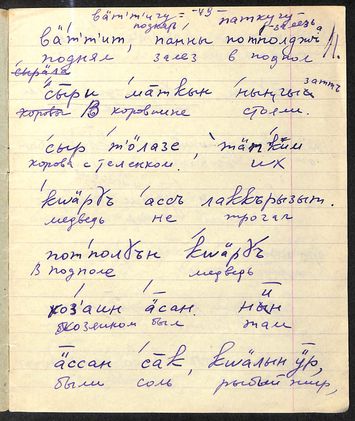 вäт'т'ичу -чу- паткугу
поднять д-залезть
вäт'т'ит, панны потполджъ
поднял залез в подпол
сырала
сыри мäткын ныңгыззаттъ
коровы В коровнике стояли.
сыр т'öлазе, тäпкӣм
корова с теленком, их
квäргъ ассъ лаккърызыт.
медведь не трогал
потполгън квäргъ
в подполе медведь
хоз'аин äсан. нын
хозяином был там
äссан сäк, квäлын ӱр,
были соль рыбий жир,